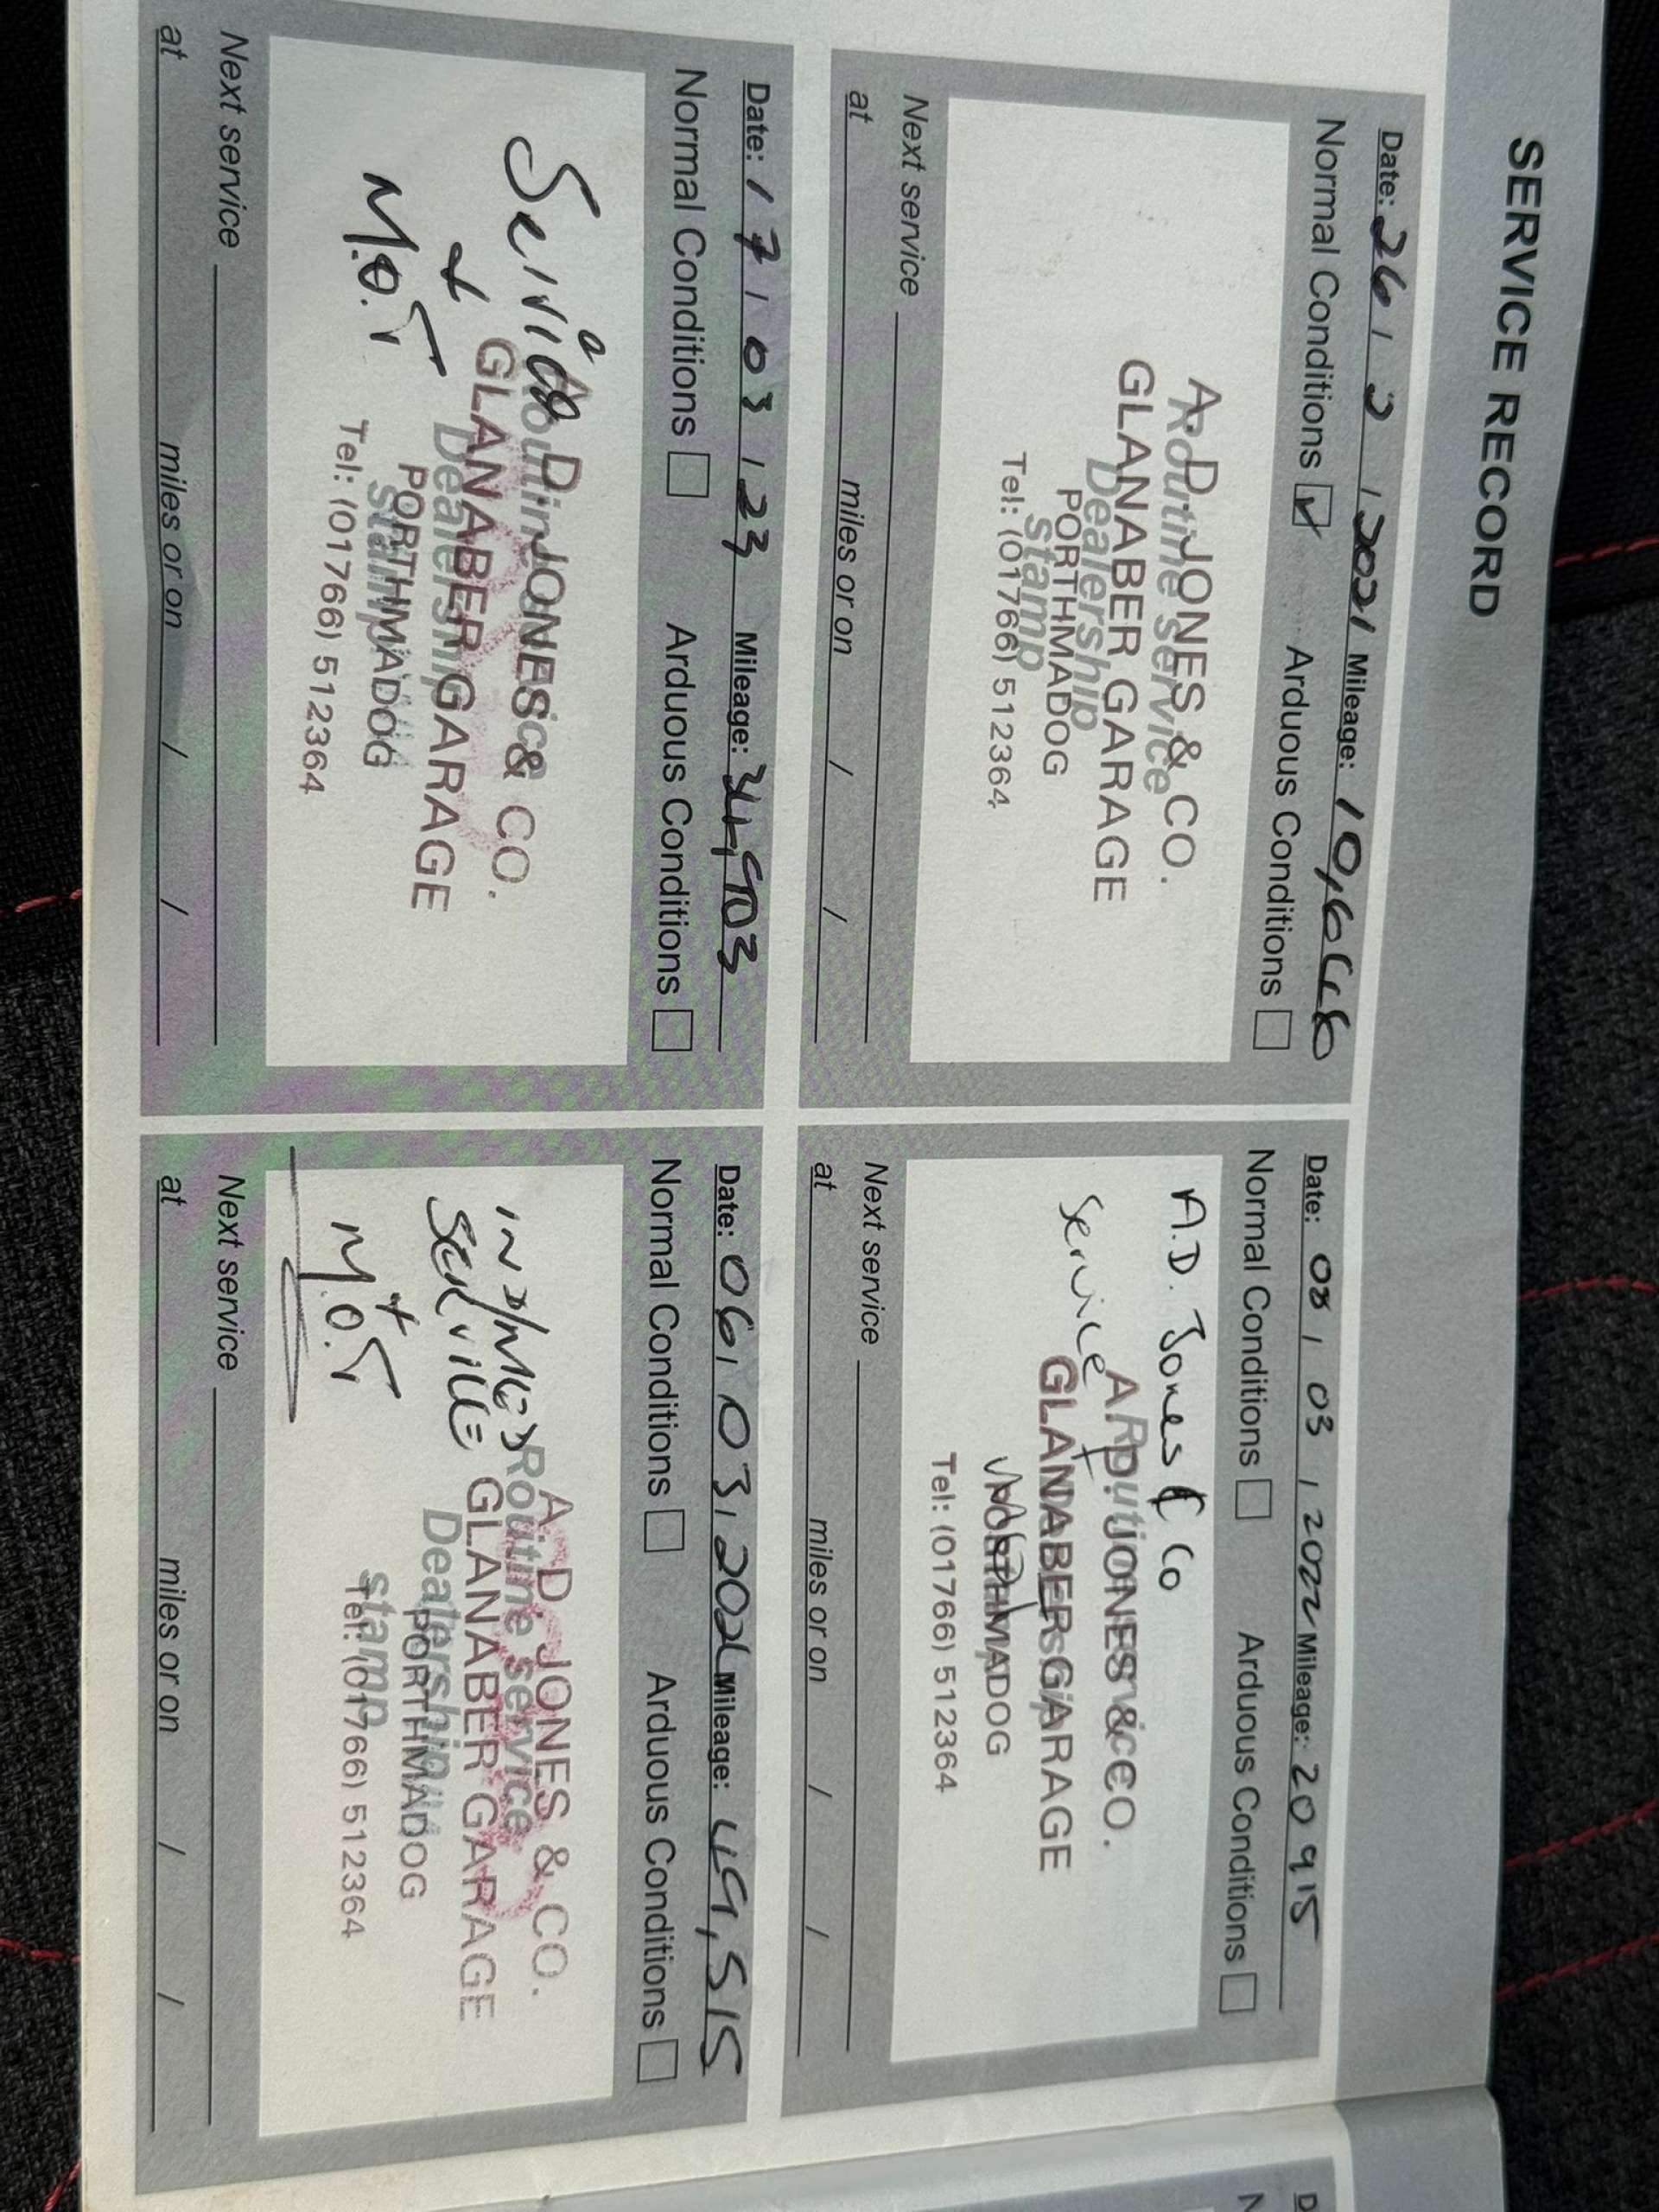 SERVICE RECORD
Date: 26 / 2 / 2021 Mileage: 10,668
Normal Conditions ☑ Arduous Conditions ☐
Routine service
Dealership
stamp
A. D. JONES & CO.
GLANABER GARAGE
PORTHMADOG
Tel: (01766) 512364
Next service
at miles or on / /
Date: 08 / 03 / 2022 Mileage: 20915
Normal Conditions ☐ Arduous Conditions ☐
A.D. Jones & Co
Service
A. D. JONES & CO.
GLANABER GARAGE
PORTHMADOG
Tel: (01766) 512364
Next service
at miles or on / /
Date: 17 / 03 / 23 Mileage: 34,903
Normal Conditions ☐ Arduous Conditions ☐
Service
+
M.O.T
Routine service
Dealership
stamp
A. D. JONES & CO.
GLANABER GARAGE
PORTHMADOG
Tel: (01766) 512364
Next service
at miles or on / /
Date: 06 / 03 / 2024 Mileage: 49,515
Normal Conditions ☐ Arduous Conditions ☐
SERVICE
+
M.O.T
Routine service
Dealership
stamp
A. D. JONES & CO.
GLANABER GARAGE
PORTHMADOG
Tel: (01766) 512364
Next service
at miles or on / /